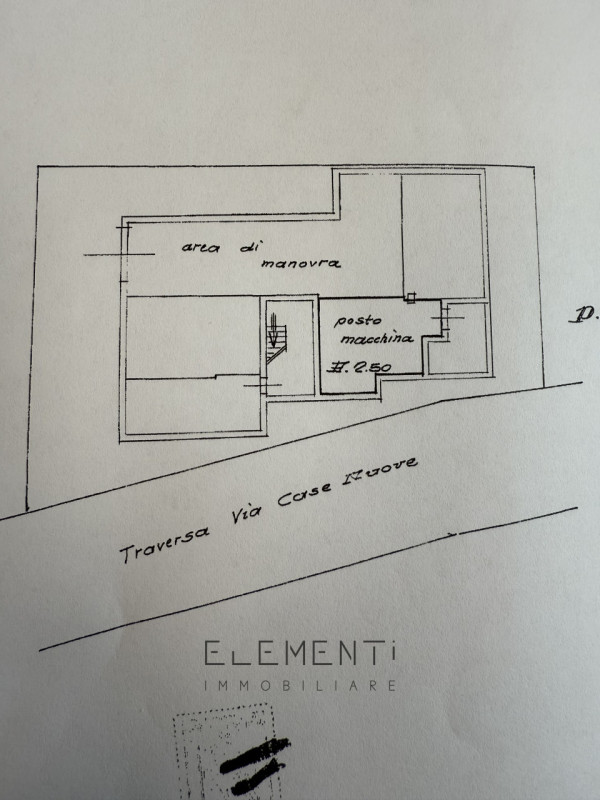 area di
manovra
posto
macchina
H. 2.50
P.
Traversa Via Case Nuove
ELEMENTi
IMMOBILIARE